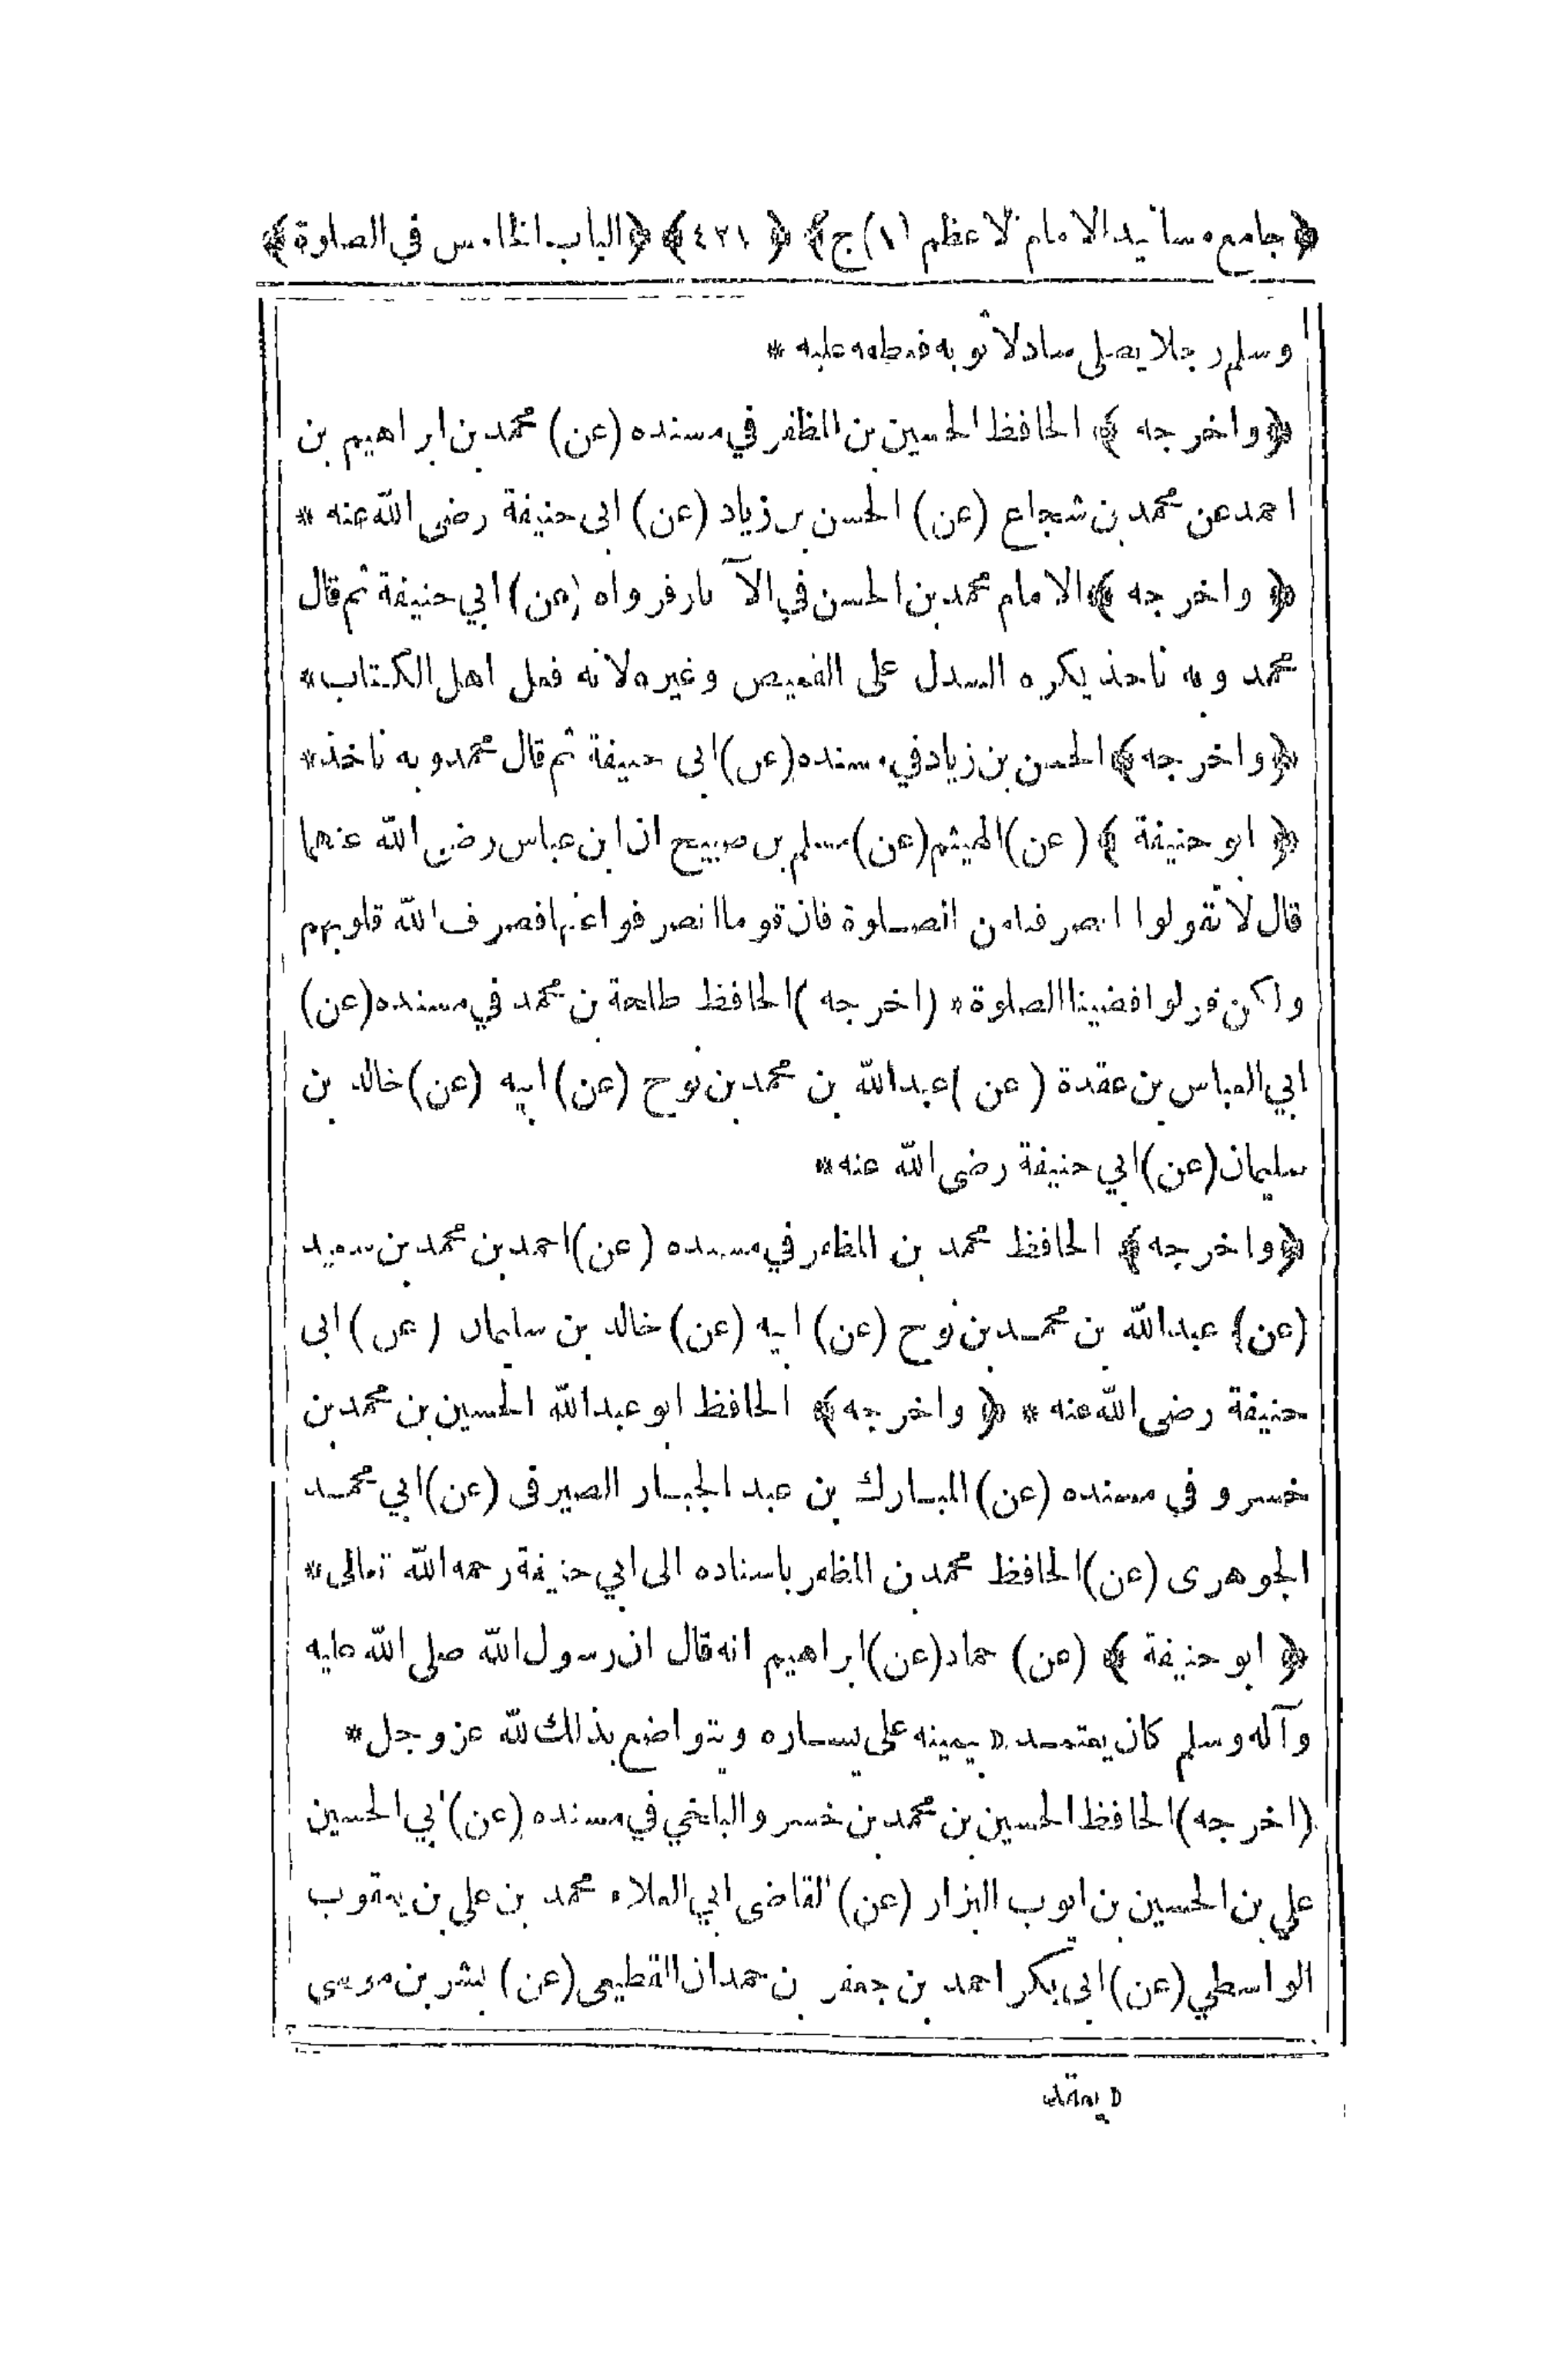 ﴿ جامع مسانيد الامام الاعظم (١) ج ﴾ ﴿ ٤٢١ ﴾ ﴿ الباب الخامس في الصلوة ﴾
وسلم رجلا يصلى سادلا ثوبه فعطفه عليه *
﴿ واخرجه ﴾ الحافظ الحسين بن المظفر في مسنده (عن) محمد بن ابراهيم بن
احمد عن محمد بن شجاع (عن) الحسن بن زياد (عن) ابى حنيفة رضى الله عنه *
﴿ واخرجه ﴾ الامام محمد بن الحسن في الآثار فرواه (عن) ابي حنيفة ثم قال
محمد وبه ناخذ يكره السدل على القميص وغيره لانه فعل اهل الكتاب *
﴿ واخرجه ﴾ الحسن بن زياد في مسنده (عن) ابى حنيفة ثم قال محمد وبه ناخذ *
﴿ ابو حنيفة ﴾ (عن) الهيثم (عن) مسلم بن صبيح ان ابن عباس رضى الله عنهما
قال لا تقولوا انصرفنا من الصلوة فان قوما انصرفوا عنها فصرف الله قلوبهم
ولكن قولوا قضينا الصلوة * (اخرجه) الحافظ طلحة بن محمد في مسنده (عن)
ابي العباس بن عقدة (عن) عبدالله بن محمد بن نوح (عن) ابيه (عن) خالد بن
سليمان (عن) ابي حنيفة رضى الله عنه *
﴿ واخرجه ﴾ الحافظ محمد بن المظفر في مسنده (عن) احمد بن محمد بن سعيد
(عن) عبدالله بن محمد بن نوح (عن) ابيه (عن) خالد بن سليمان (عن) ابى
حنيفة رضى الله عنه * ﴿ واخرجه ﴾ الحافظ ابو عبدالله الحسين بن محمد بن
خسرو في مسنده (عن) المبارك بن عبد الجبار الصيرفى (عن) ابي محمد
الجوهرى (عن) الحافظ محمد بن المظفر باسناده الى ابي حنيفة رحمه الله تعالى *
﴿ ابو حنيفة ﴾ (عن) حماد (عن) ابراهيم انه قال ان رسول الله صلى الله عليه
وآله وسلم كان يعتمد ¤ بيمينه على يساره ويتواضع بذلك لله عز وجل *
(اخرجه) الحافظ الحسين بن محمد بن خسرو البلخي في مسنده (عن) ابي الحسين
علي بن الحسين بن ايوب البزار (عن) القاضى ابي العلاء محمد بن علي بن يعقوب
الواسطي (عن) ابى بكر احمد بن جعفر بن حمدان القطيعى (عن) بشر بن موسى